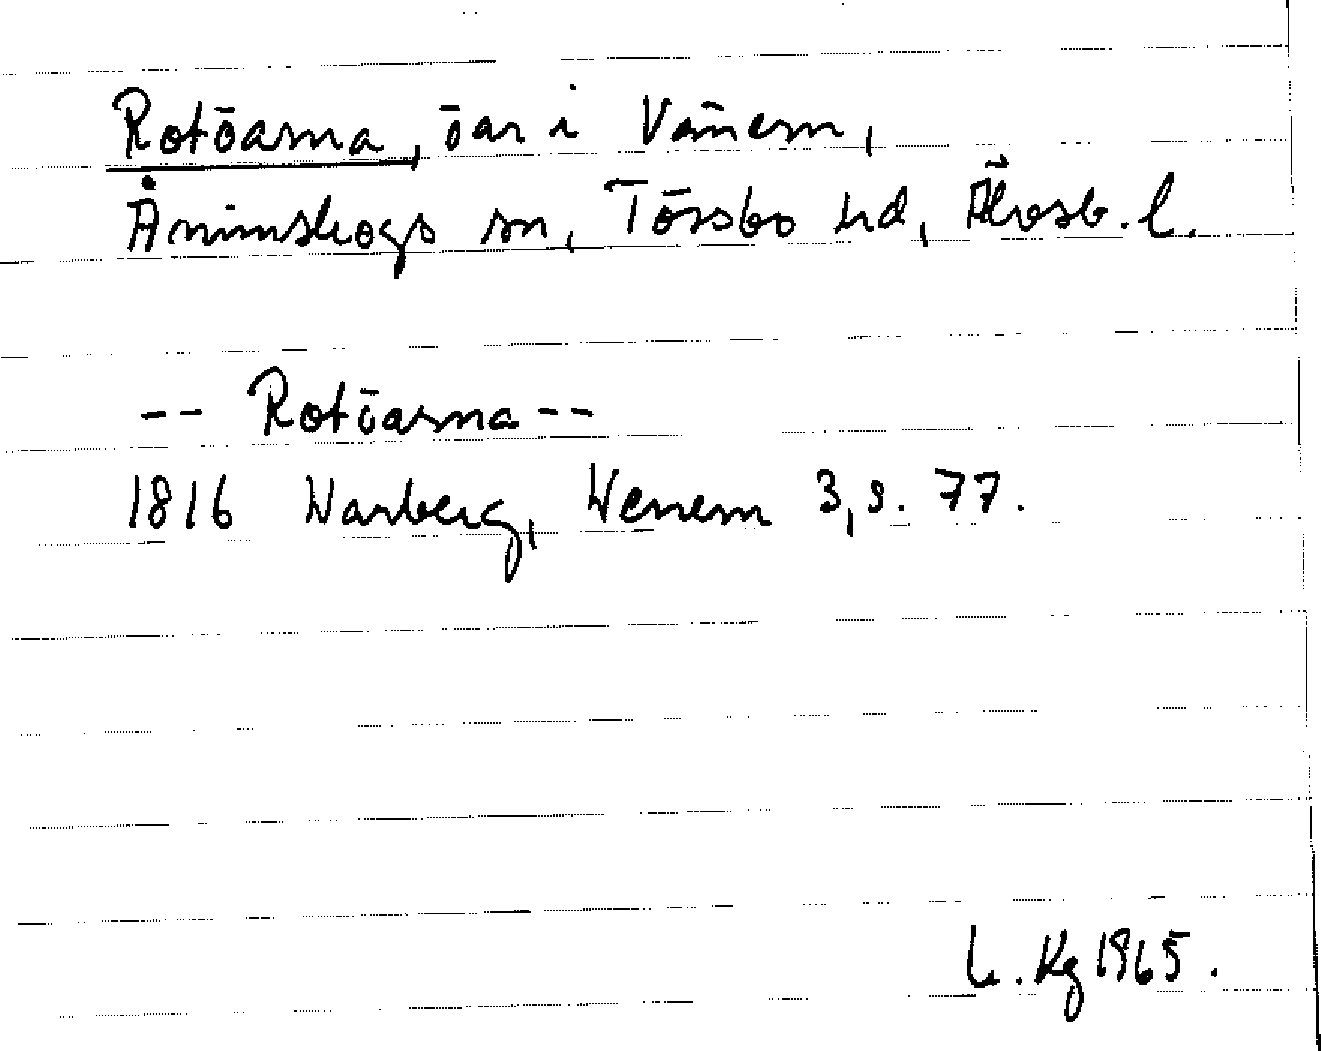 Rotöarna, öar i Vänern,
Ånimskogs sn, Tössbo hd, Älvsb. l.
-- Rotöarna --
1816 Warberg, Wenern 3, s. 77.
L. Kg 1965.